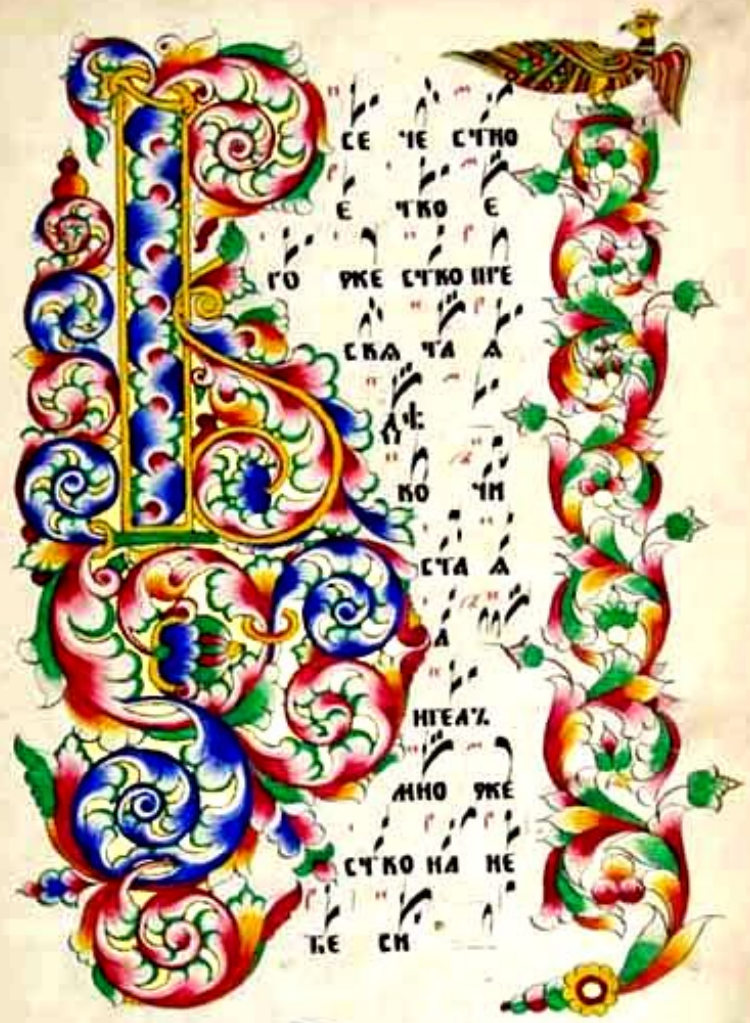 В СЕ ЧЕ СТНО
Е ТВО Е
РО ЖЕ СТВО ПРЕ
СВѦ ТА Ѧ
ДѢ
ВО ЧИ
СТА Ѧ
А
НГЕЛЪ
МНО ЖЕ
СТВО НА НЕ
БЕ СИ